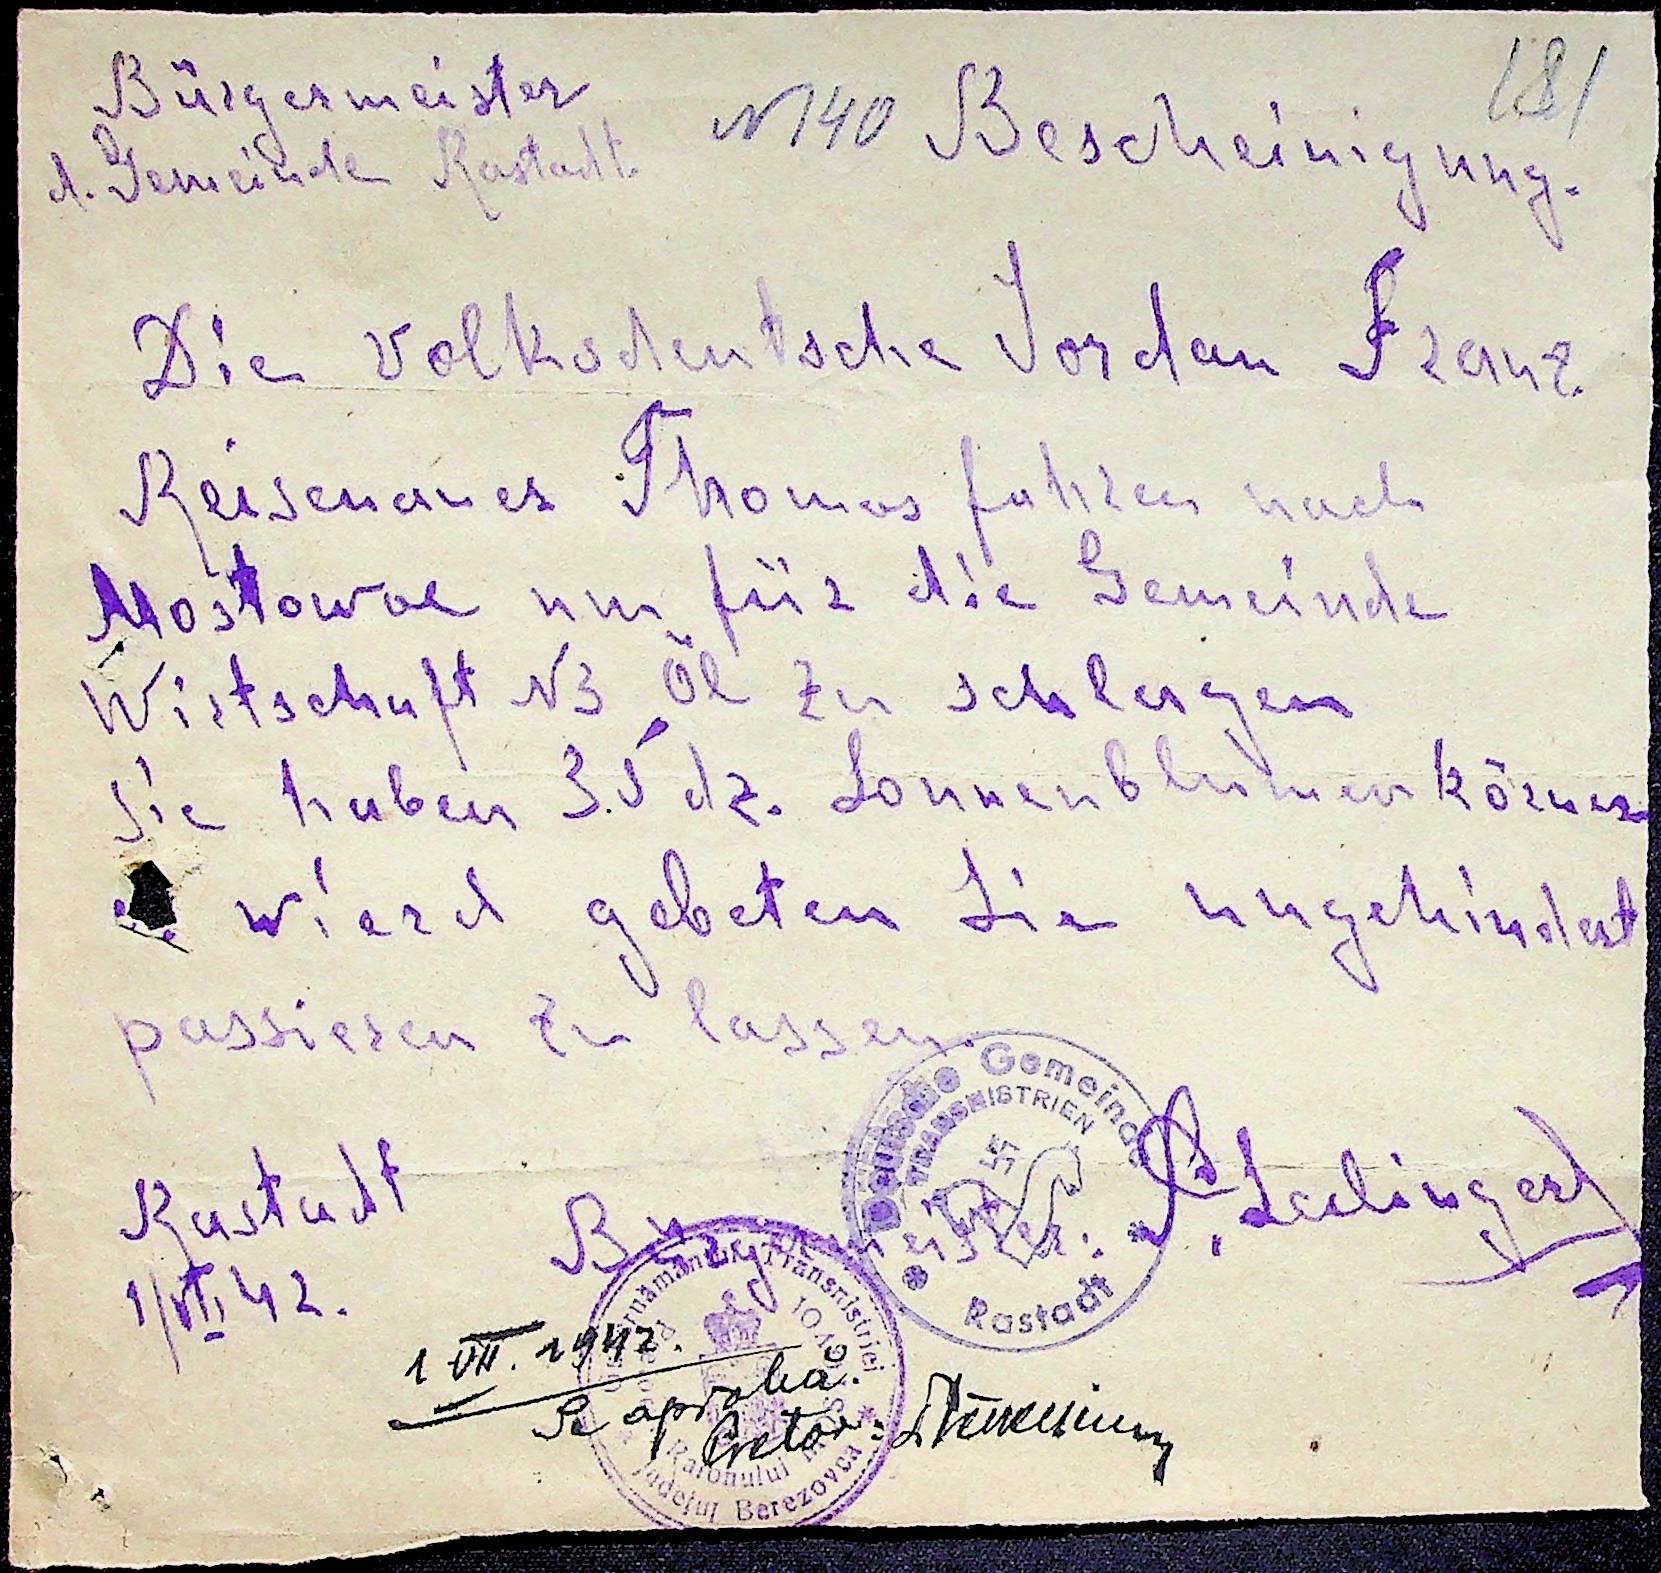 181
Bürgermeister
d. Gemeinde Rastadt.
N 140 Bescheinigung.
Die volksdeutsche Jordan Franz
Reisenauer Thomas fahren nach
Mostowoe um für die Gemeinde
Wirtschaft N3 Öl zu schlagen
Sie haben 3.5 dz. Sonnenblumenkörner
wierd gebeten Sie ungehindert
passieren zu lassen.
Deutsche Gemeinde
TRANSNISTRIEN
Rastadt
Rastadt
Bürgermeister:
1/VII 42.
Guvernământul Transnistriei
Raionului
Județul Berezovca
1 VII. 1942.
Se aprobă.
Pretor: